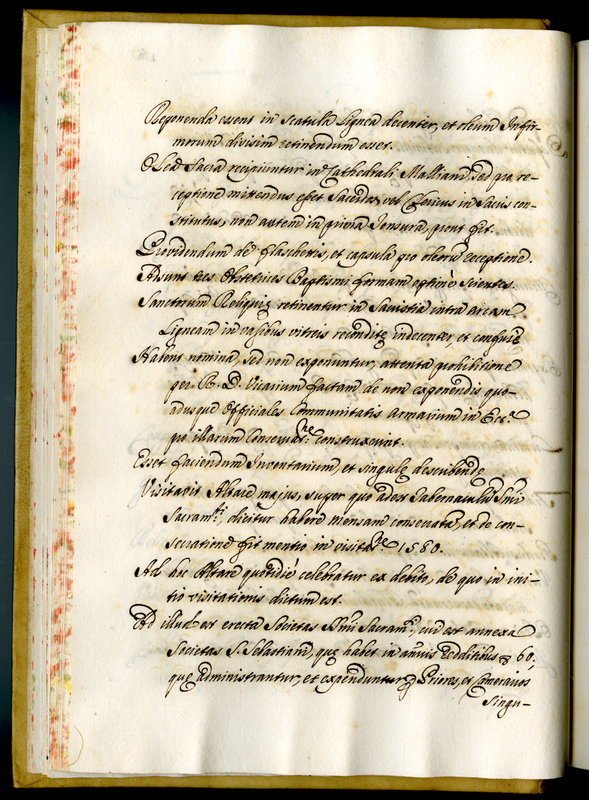 Reponenda essent in scatula lignea decenter, et oleum Infir-
morum divisim retinendum esset.
Olea Sacra recipiuntur in Cathedrali Malliani, sed pro re-
ceptione mittendus esset Sacerdos, vel Clericus in Sacris con-
stitutus, non autem in prima Tonsura, prout fit.
Providendum de flascheris, et capsula pro oleorum receptione.
Adsunt tres Obstetrices Baptismi formam optime scientes.
Sanctorum Reliquiæ retinentur in Sacristia intra arcam
Ligneam in vasibus vitreis recondite indecenter, et confuse
Habent nomina, sed non exponuntur, attenta prohibitione
per R. D. Vicarium facta de non exponendis quo-
adusque Officiales Communitatis Armarium in Ecc.ª
pro illarum conservat.ne construxerint.
Esset faciendum Inventarium, et singulę describendę
Visitavit Altare majus, super quo adest Tabernaculum SSmi
Sacram.ti, dicitur habere mensam consecratam, et de con-
secratione fit mentio in visitat.ne 1580.
Ad hoc Altare quotidie celebratur ex debito, de quo in ini-
tio visitationis dictum est.
Ad illud est erecta Societas SSmi Sacram.ti, cui est annexa
Societas S. Sebastiani, quę habet in annuis redditibus 60,
que administrantur, et expenduntur Priores, et Camerarios
Singu-